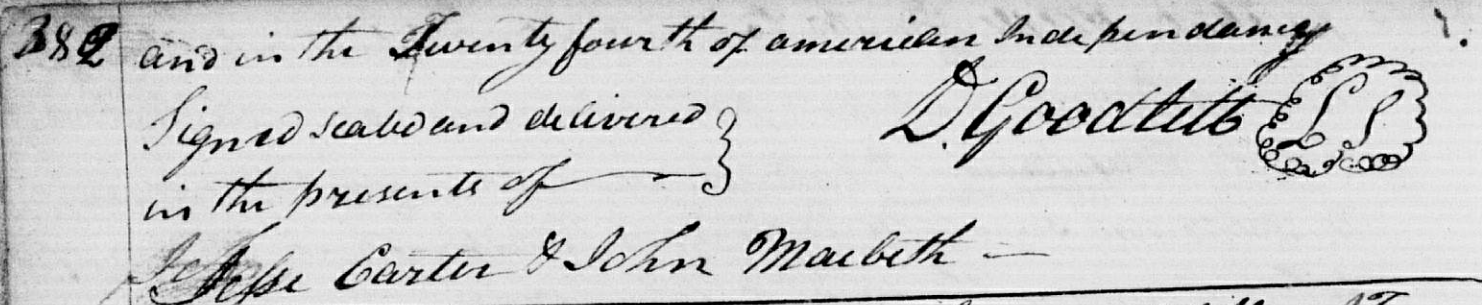 382 and in the Twenty fourth of american Independancy
Signed sealed and delivered }
D. Goodlett LS
in the presents of
Jesse Carter & John Macbeth